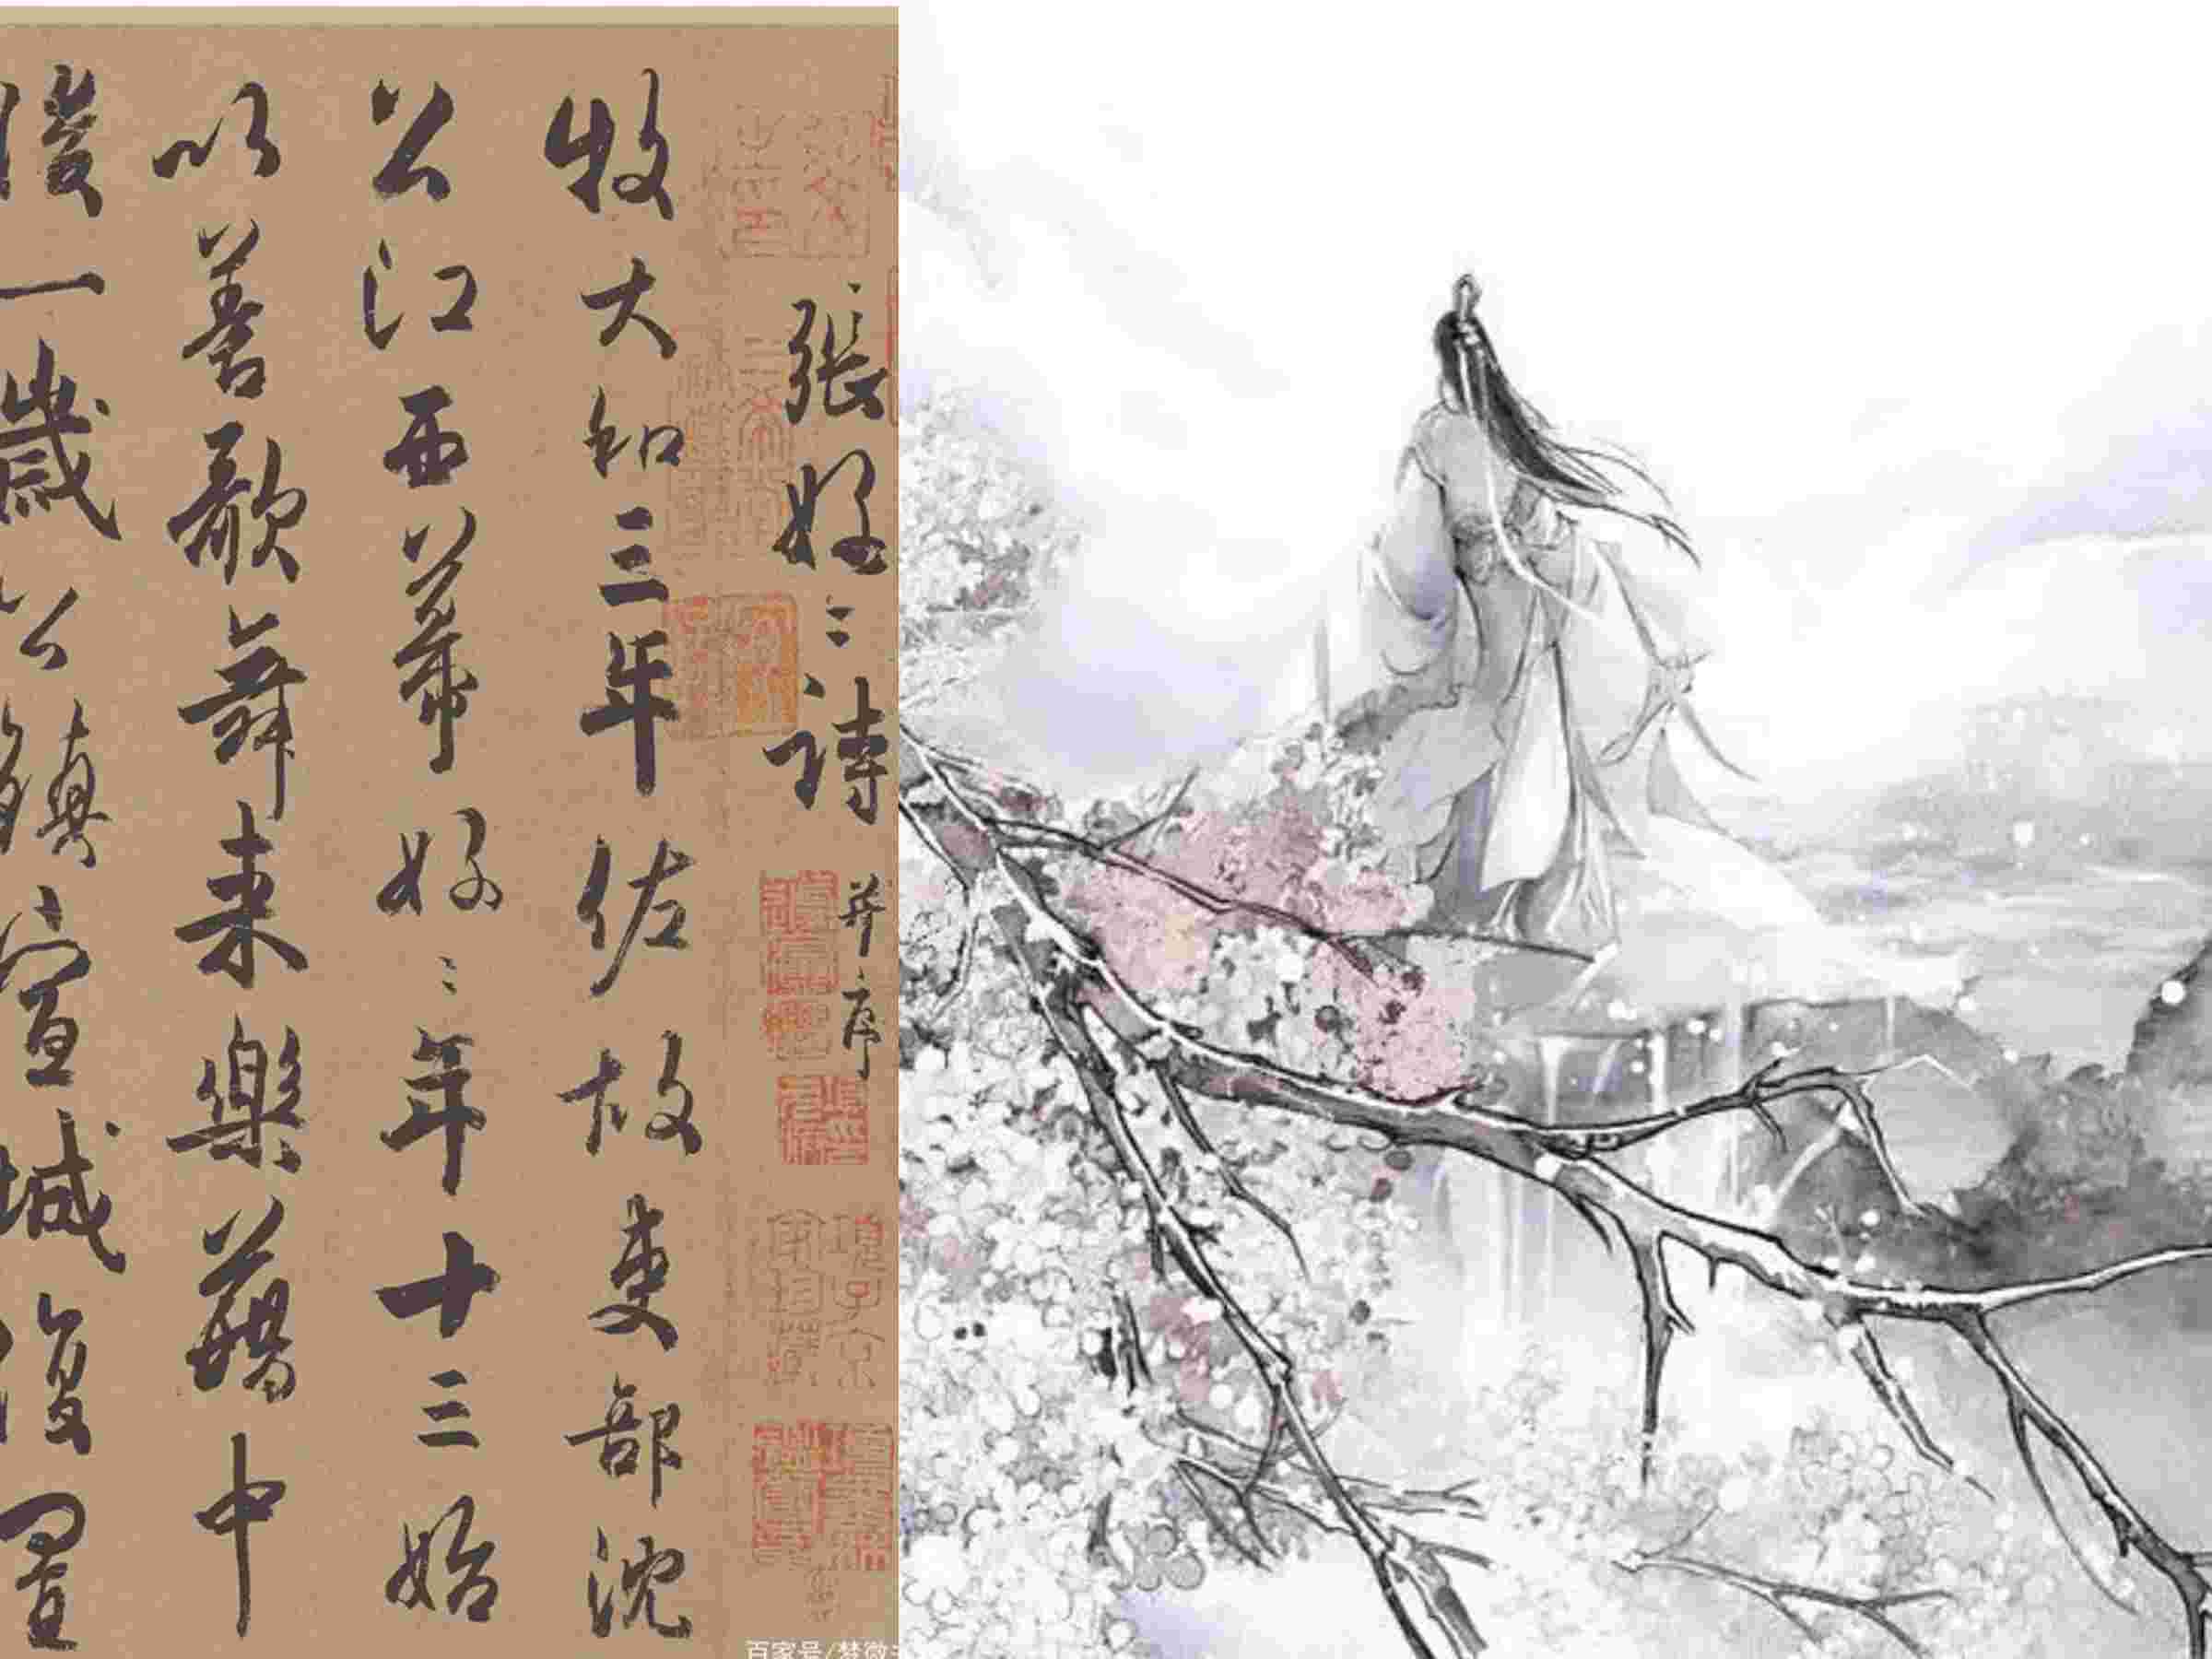 張好〻詩 并序
牧大和三年佐故吏部沈
公江西幕好〻年十三始
以善歌舞来樂籍中
後一歲公鎮宣城復置
百家号/梦微